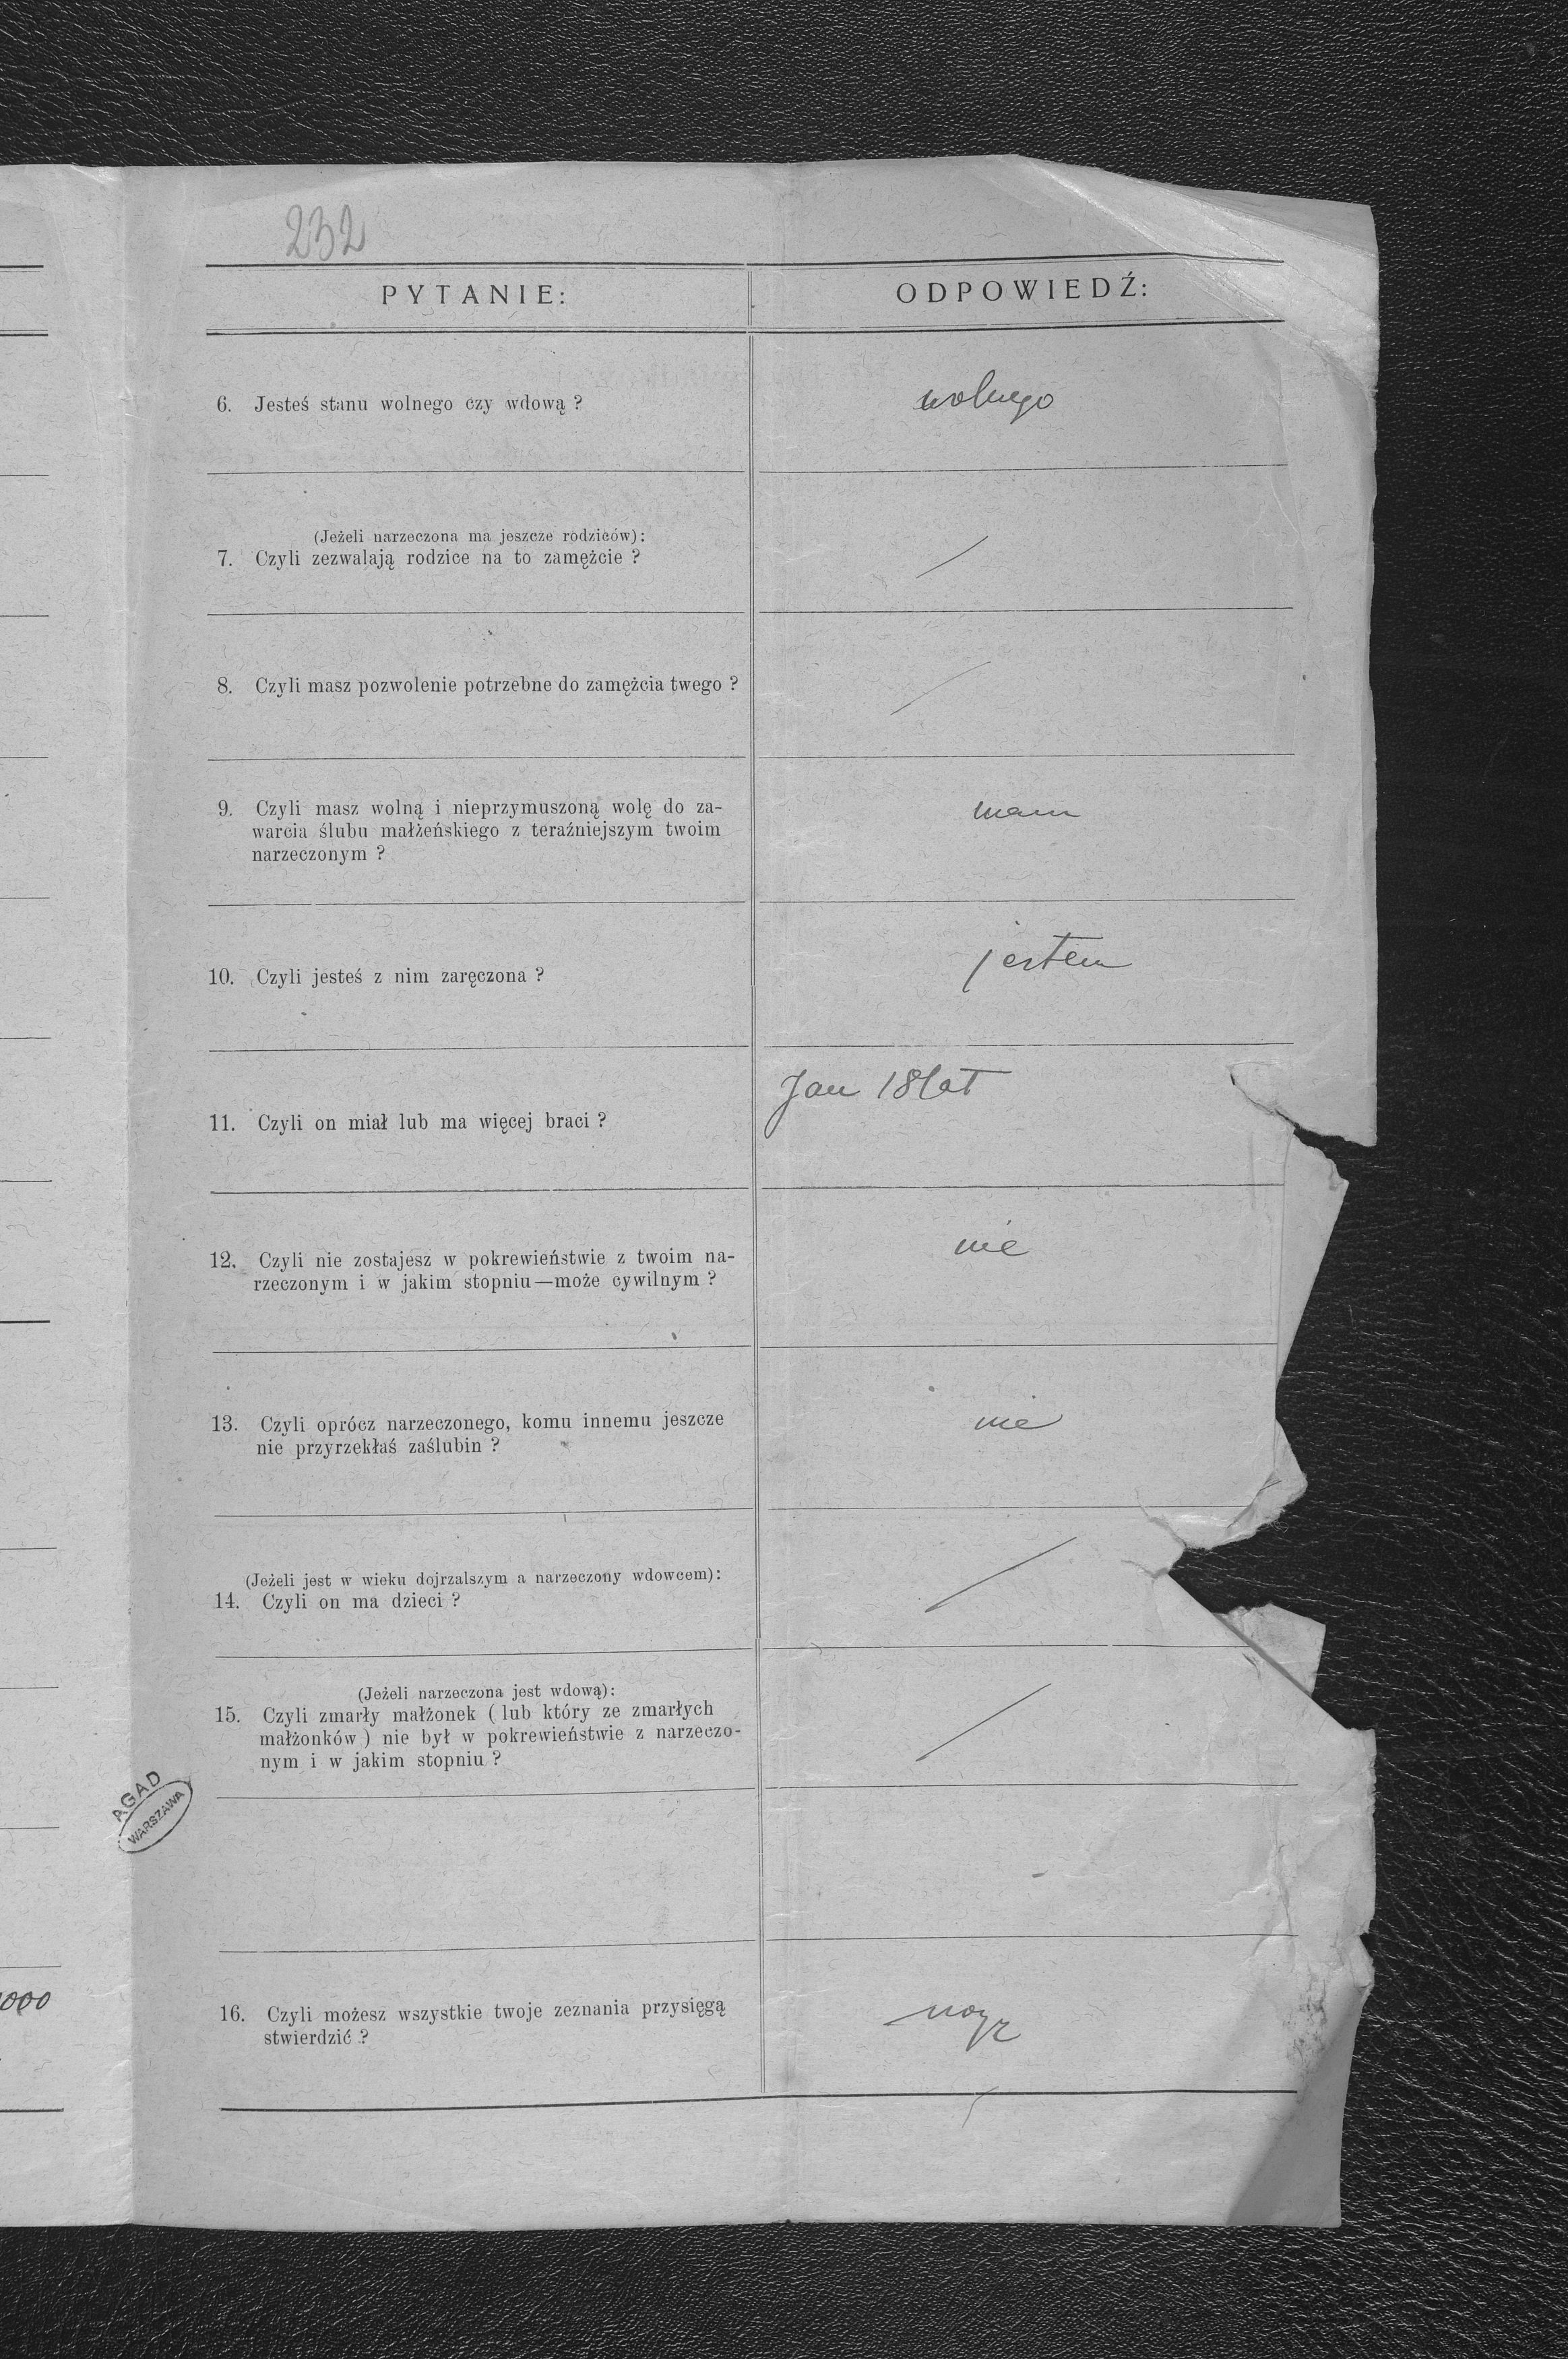 232
PYTANIE:
ODPOWIEDŹ:
6. Jesteś stanu wolnego czy wdową ?
wolnego
(Jeżeli narzeczona ma jeszcze rodziców):
7. Czyli zezwalają rodzice na to zamężcie ?
/
8. Czyli masz pozwolenie potrzebne do zamężcia twego ?
/
9. Czyli masz wolną i nieprzymuszoną wolę do za-
warcia ślubu małżeńskiego z teraźniejszym twoim
narzeczonym ?
mam
10. Czyli jesteś z nim zaręczona ?
jestem
11. Czyli on miał lub ma więcej braci ?
Jan 18 lat
12. Czyli nie zostajesz w pokrewieństwie z twoim na-
rzeczonym i w jakim stopniu—może cywilnym ?
nie
13. Czyli oprócz narzeczonego, komu innemu jeszcze
nie przyrzekłaś zaślubin ?
nie
(Jeżeli jest w wieku dojrzalszym a narzeczony wdowcem):
14. Czyli on ma dzieci ?
/
(Jeżeli narzeczona jest wdową):
15. Czyli zmarły małżonek ( lub który ze zmarłych
małżonków ) nie był w pokrewieństwie z narzeczo-
nym i w jakim stopniu ?
/
AGAD
WARSZAWA
000
16. Czyli możesz wszystkie twoje zeznania przysięgą
stwierdzić ?
mogę